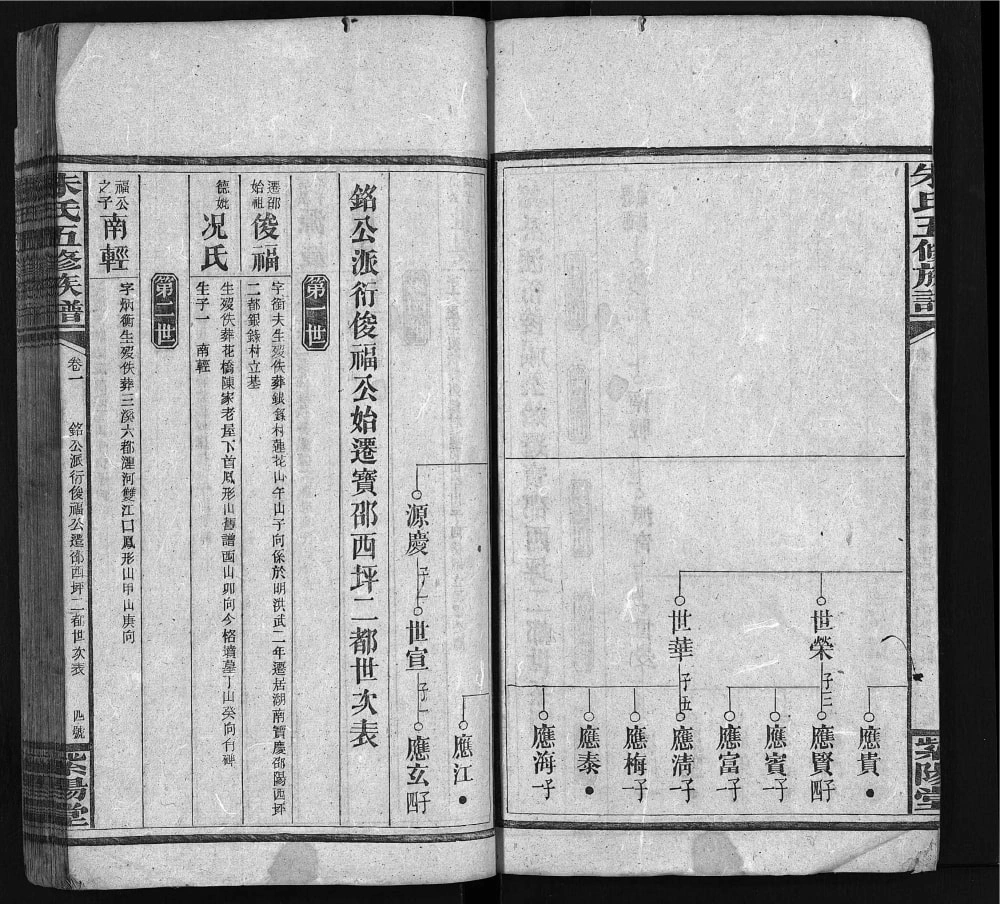 朱氏五修族譜
紫陽堂
世榮
子三
世華
子五
應貴
應賢 四子
應賓 一子
應富 一子
應清 一子
應梅 一子
應泰
應海 一子
應江
源慶
子一
世宣
子一
應玄 四子
銘公派衍俊福公始遷寶邵西坪二都世次表
第一世
遷邵始祖 俊福
字衡夫生歿佚葬銀錄村蓮花山午山子向係於明洪武二年遷居湖南寶慶邵陽西坪
二都銀錄村立基
德妣 况氏
生歿佚葬花橋陳家老屋下首鳳形山舊譜酉山卯向今格墳墓丁山癸向有碑
生子一 南輕
第二世
福公之子 南輕
字炳衡生歿佚葬三溪六都漣河雙江口鳳形山甲山庚向
朱氏五修族譜
卷一
銘公派衍俊福公遷邵西坪二都世次表
四號
紫陽堂